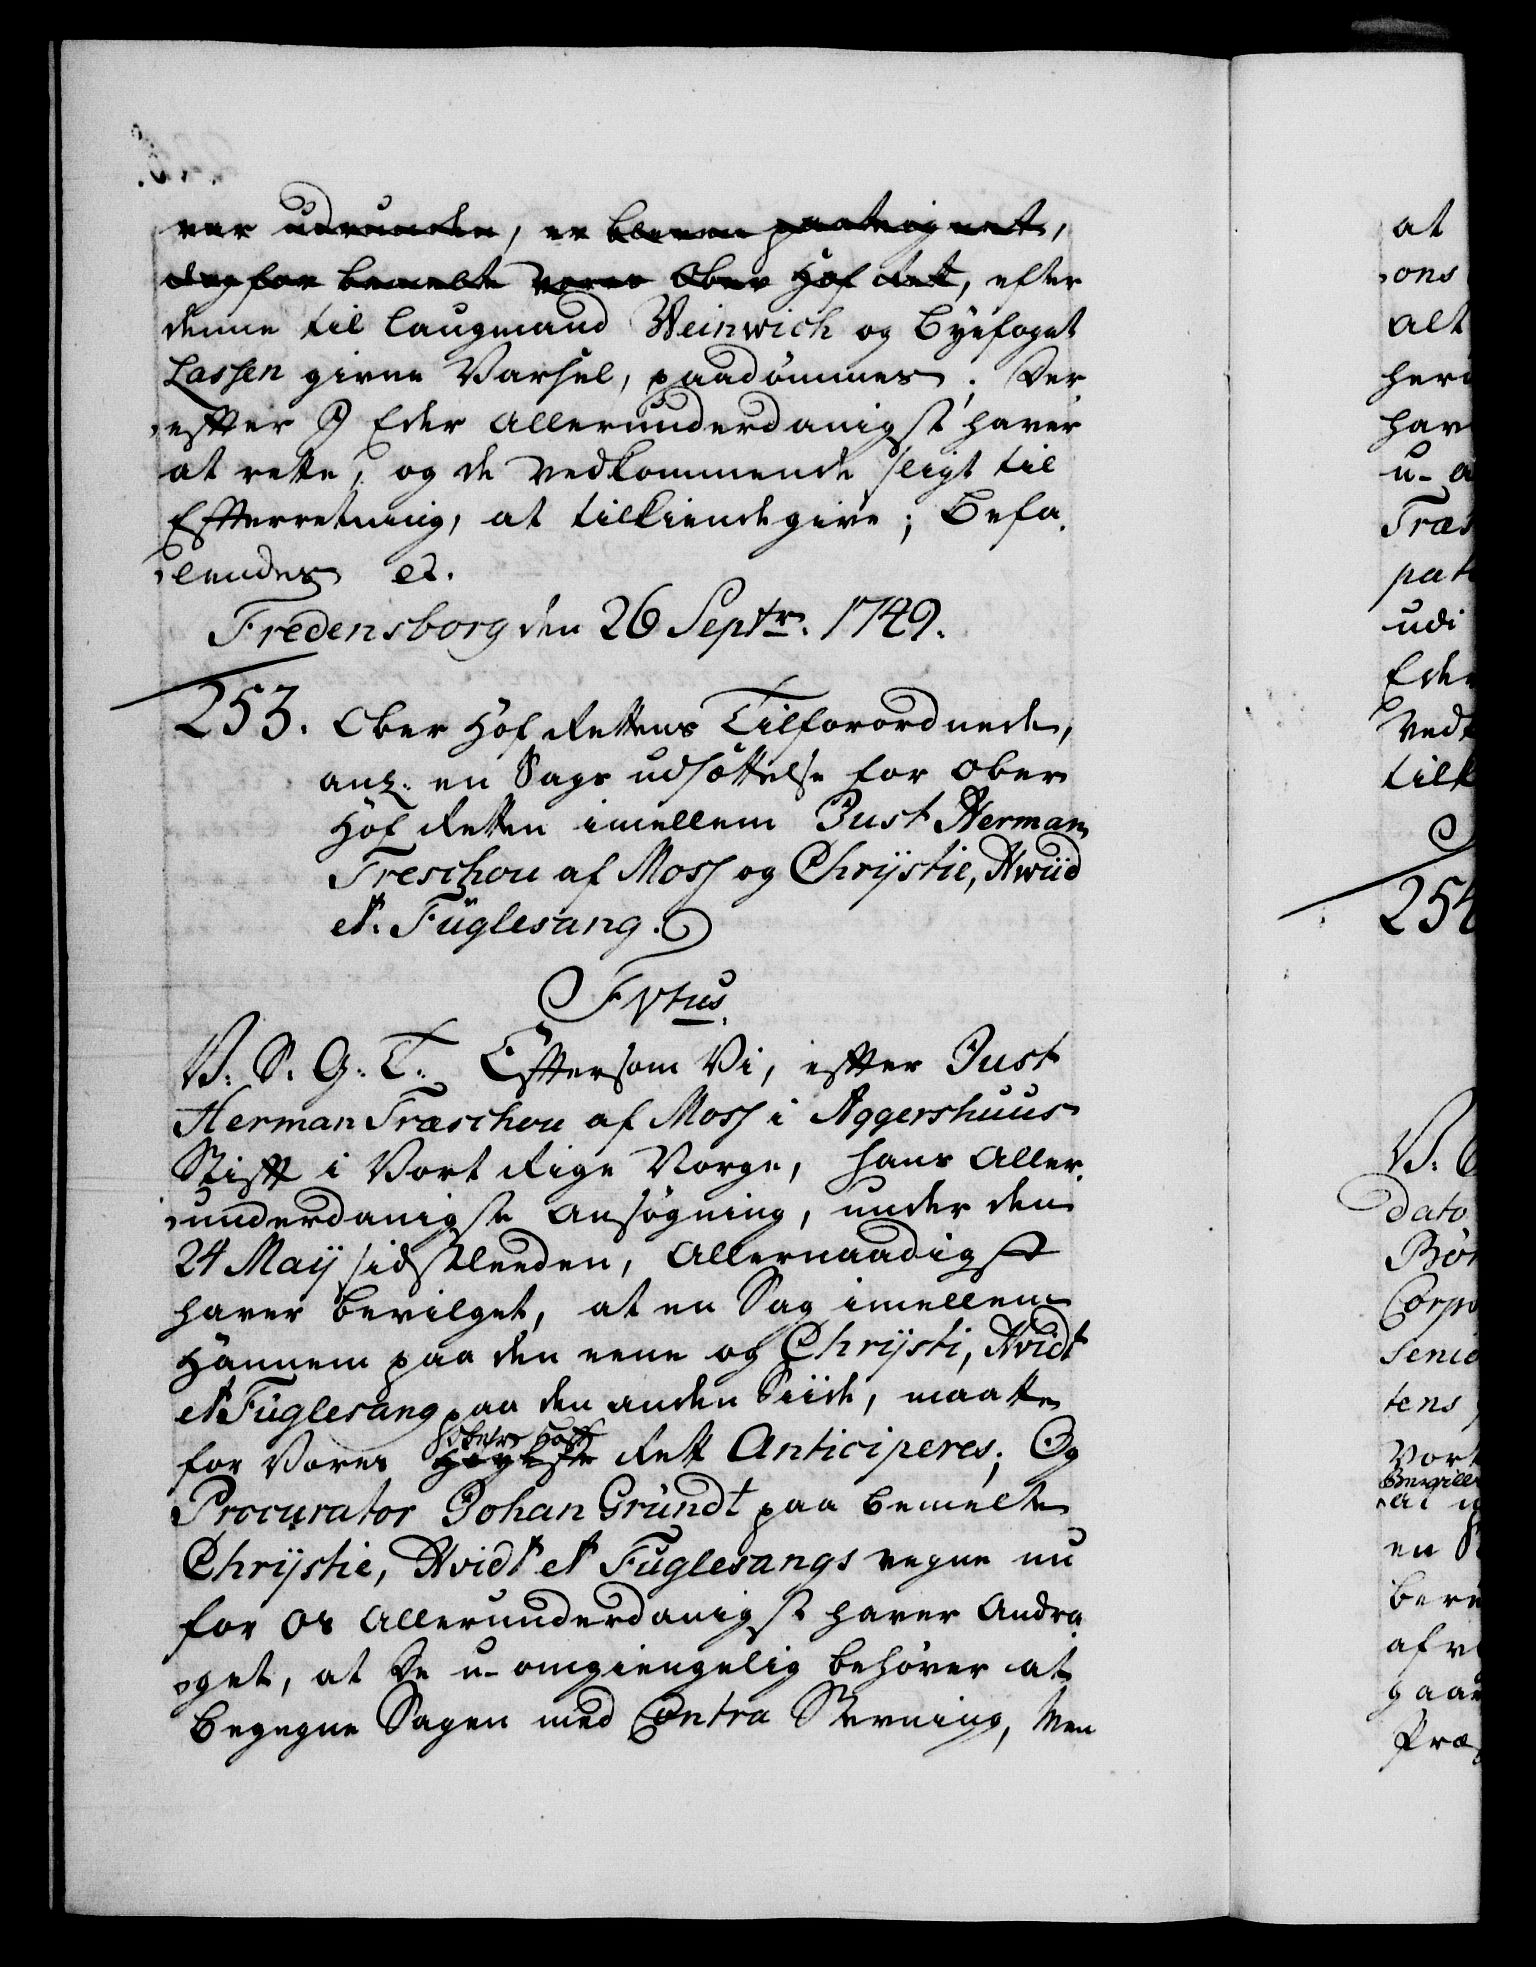 ver udrunden, er bleven paateignet,
dog for bemelte Vores Ober Hof Ret, efter
denne til Laugmand Weinwich og Byefoget
Lassen givne Varsel, paadømmes. Der
efter I Eder Allerunderdanigst haver
at rette, og de Vedkommende sligt til
Efterretning, at tilkiendegive; Befa-
lendes etc.
Fredensborg den 26 Septr. 1749.
253. Ober Hof Rettens Tilforordnede,
ang. en Sags udsættelse for Ober
Hof Retten imellem Just Herman
Treschou af Moss og Chrystie, Hwiid
et Fuglesang.
F Vtus
V. S. G. T. Eftersom Vi, efter Just
Herman Træschou af Moss i Aggershuus
Stift i Vort Rige Norge, hans Aller-
underdanigste Ansøgning, under den
24 Maij sidstleeden, Allernaadigst
haver bevilget, at en Sag imellem
Hannem paa den eene og Chrysti, Hvidt
et Fuglesang paa den anden Siide, maatte
for Vores Høyeste Ober Hoff Rett Anticiperes; Og
Procurator Johan Gründt paa bemelte
Chrystie, Hvidt et Fuglesangs vegne nu
for Os Allerunderdanigst haver Andra-
get, at De u-omgiengelig behøver at
begegne Sagen med Contra Stevning, Men
at
ons
Alt
u-
Træs
udi
Eder
Ved
tilk
254
V.
Dato
Bør
Corpo
Senio
tens
Vort
en
af
gaae
Præ